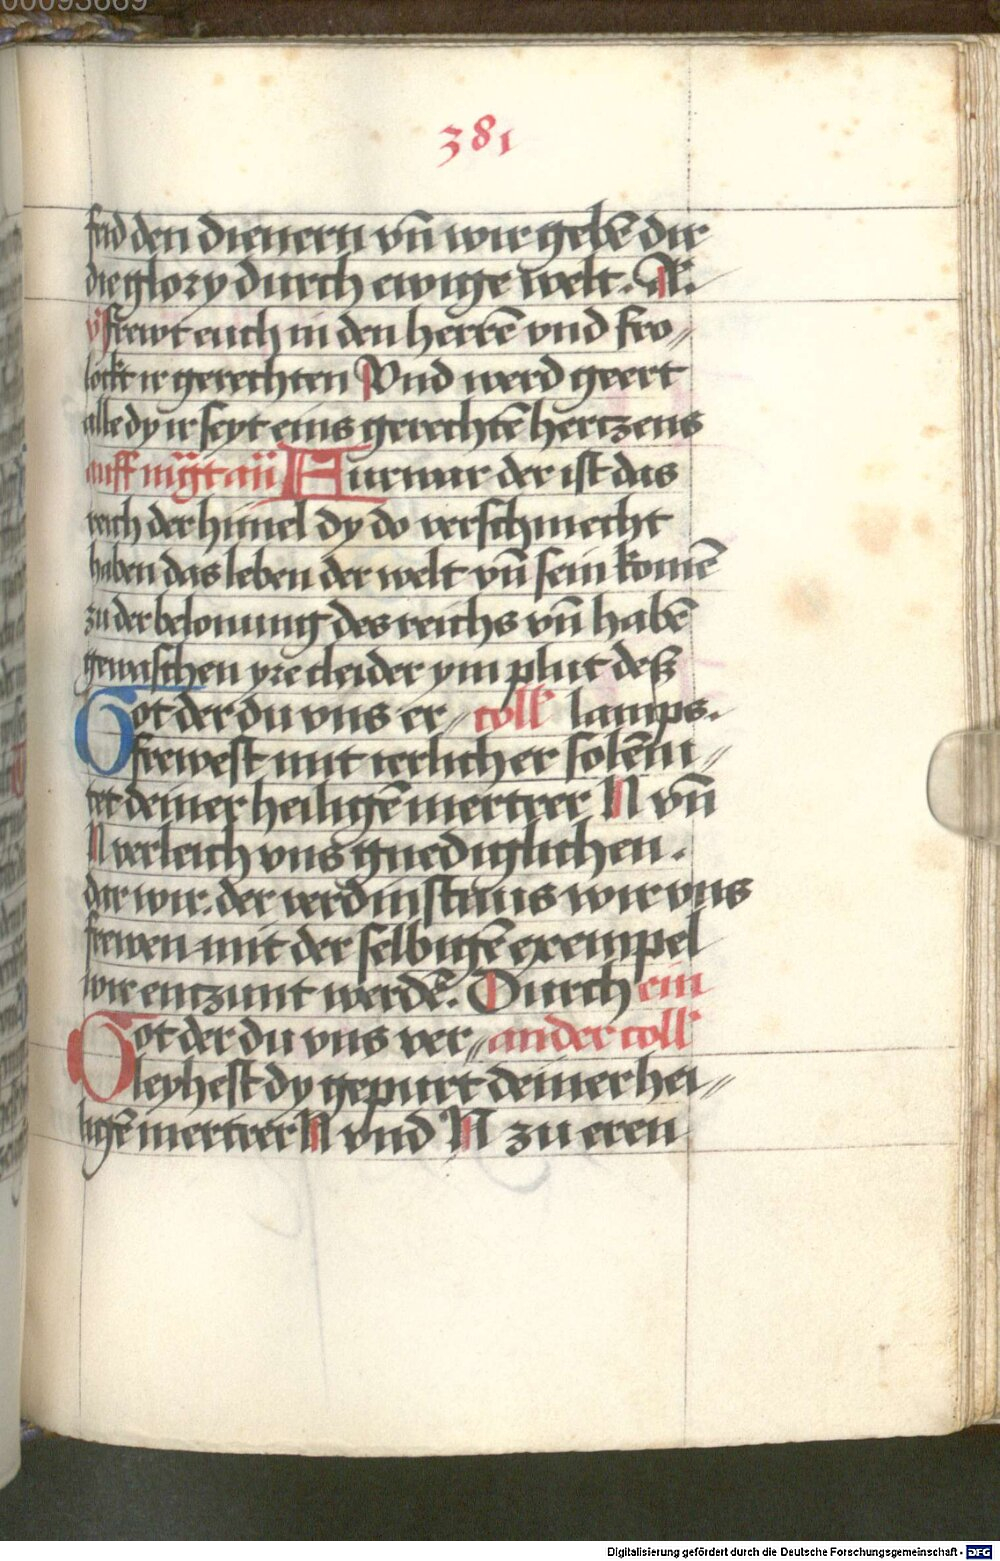 00093669
381
frid den dienern vn̄ wir gebē dir
die glory durch ewige welt. R.
v̾ frewt euch in den herrē vnd fro„
lockt ir gerechten Vnd werd geert
alle dy ir seyt eins gerechtē hertzens
auff m̄gt añ Furwar der ist das
reich der himel dy do verschmecht
haben das leben der welt vn̄ sein komē
zu der belonung des reichs vn̄ habē
gewaschen yre cleider ym plut deß
Got der du vns er„ coll lamps.
frewest mit ierlicher solēni„
tet deiner heiligē mertrer N vn̄
N verleich vns gnediglichen.
dar wir. der verdinstnus wir vns
frewen mit der selbigē exempel
wir entzunt werdē. Durch ein
Got der du vns ver„ ander coll
leyhest dy gepurt deiner hei„
ligē mertrer N vnd N zu eren
Digitalisierung gefördert durch die Deutsche Forschungsgemeinschaft - DFG